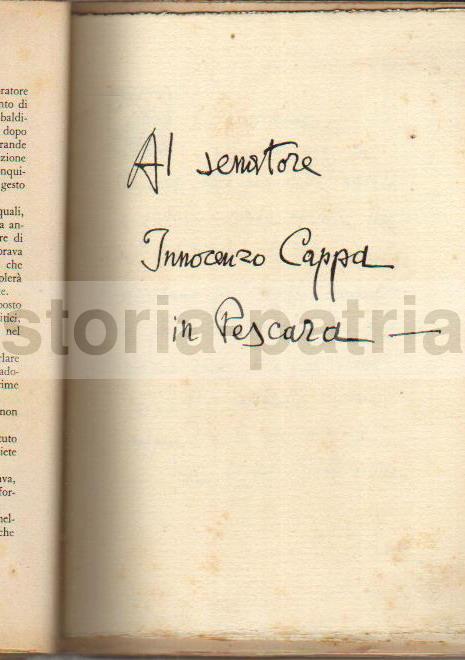 ratore
nto di
baldi-
dopo
rande
zione
nqui-
gesto
quali,
a an-
re di
brava
che
olerà
e.
posto
itici.
nel
rlare
ado-
rime
non
tuto
iete
va,
for-
nel-
che
Al senatore
Innocenzo Cappa
in Pescara —
storia patria